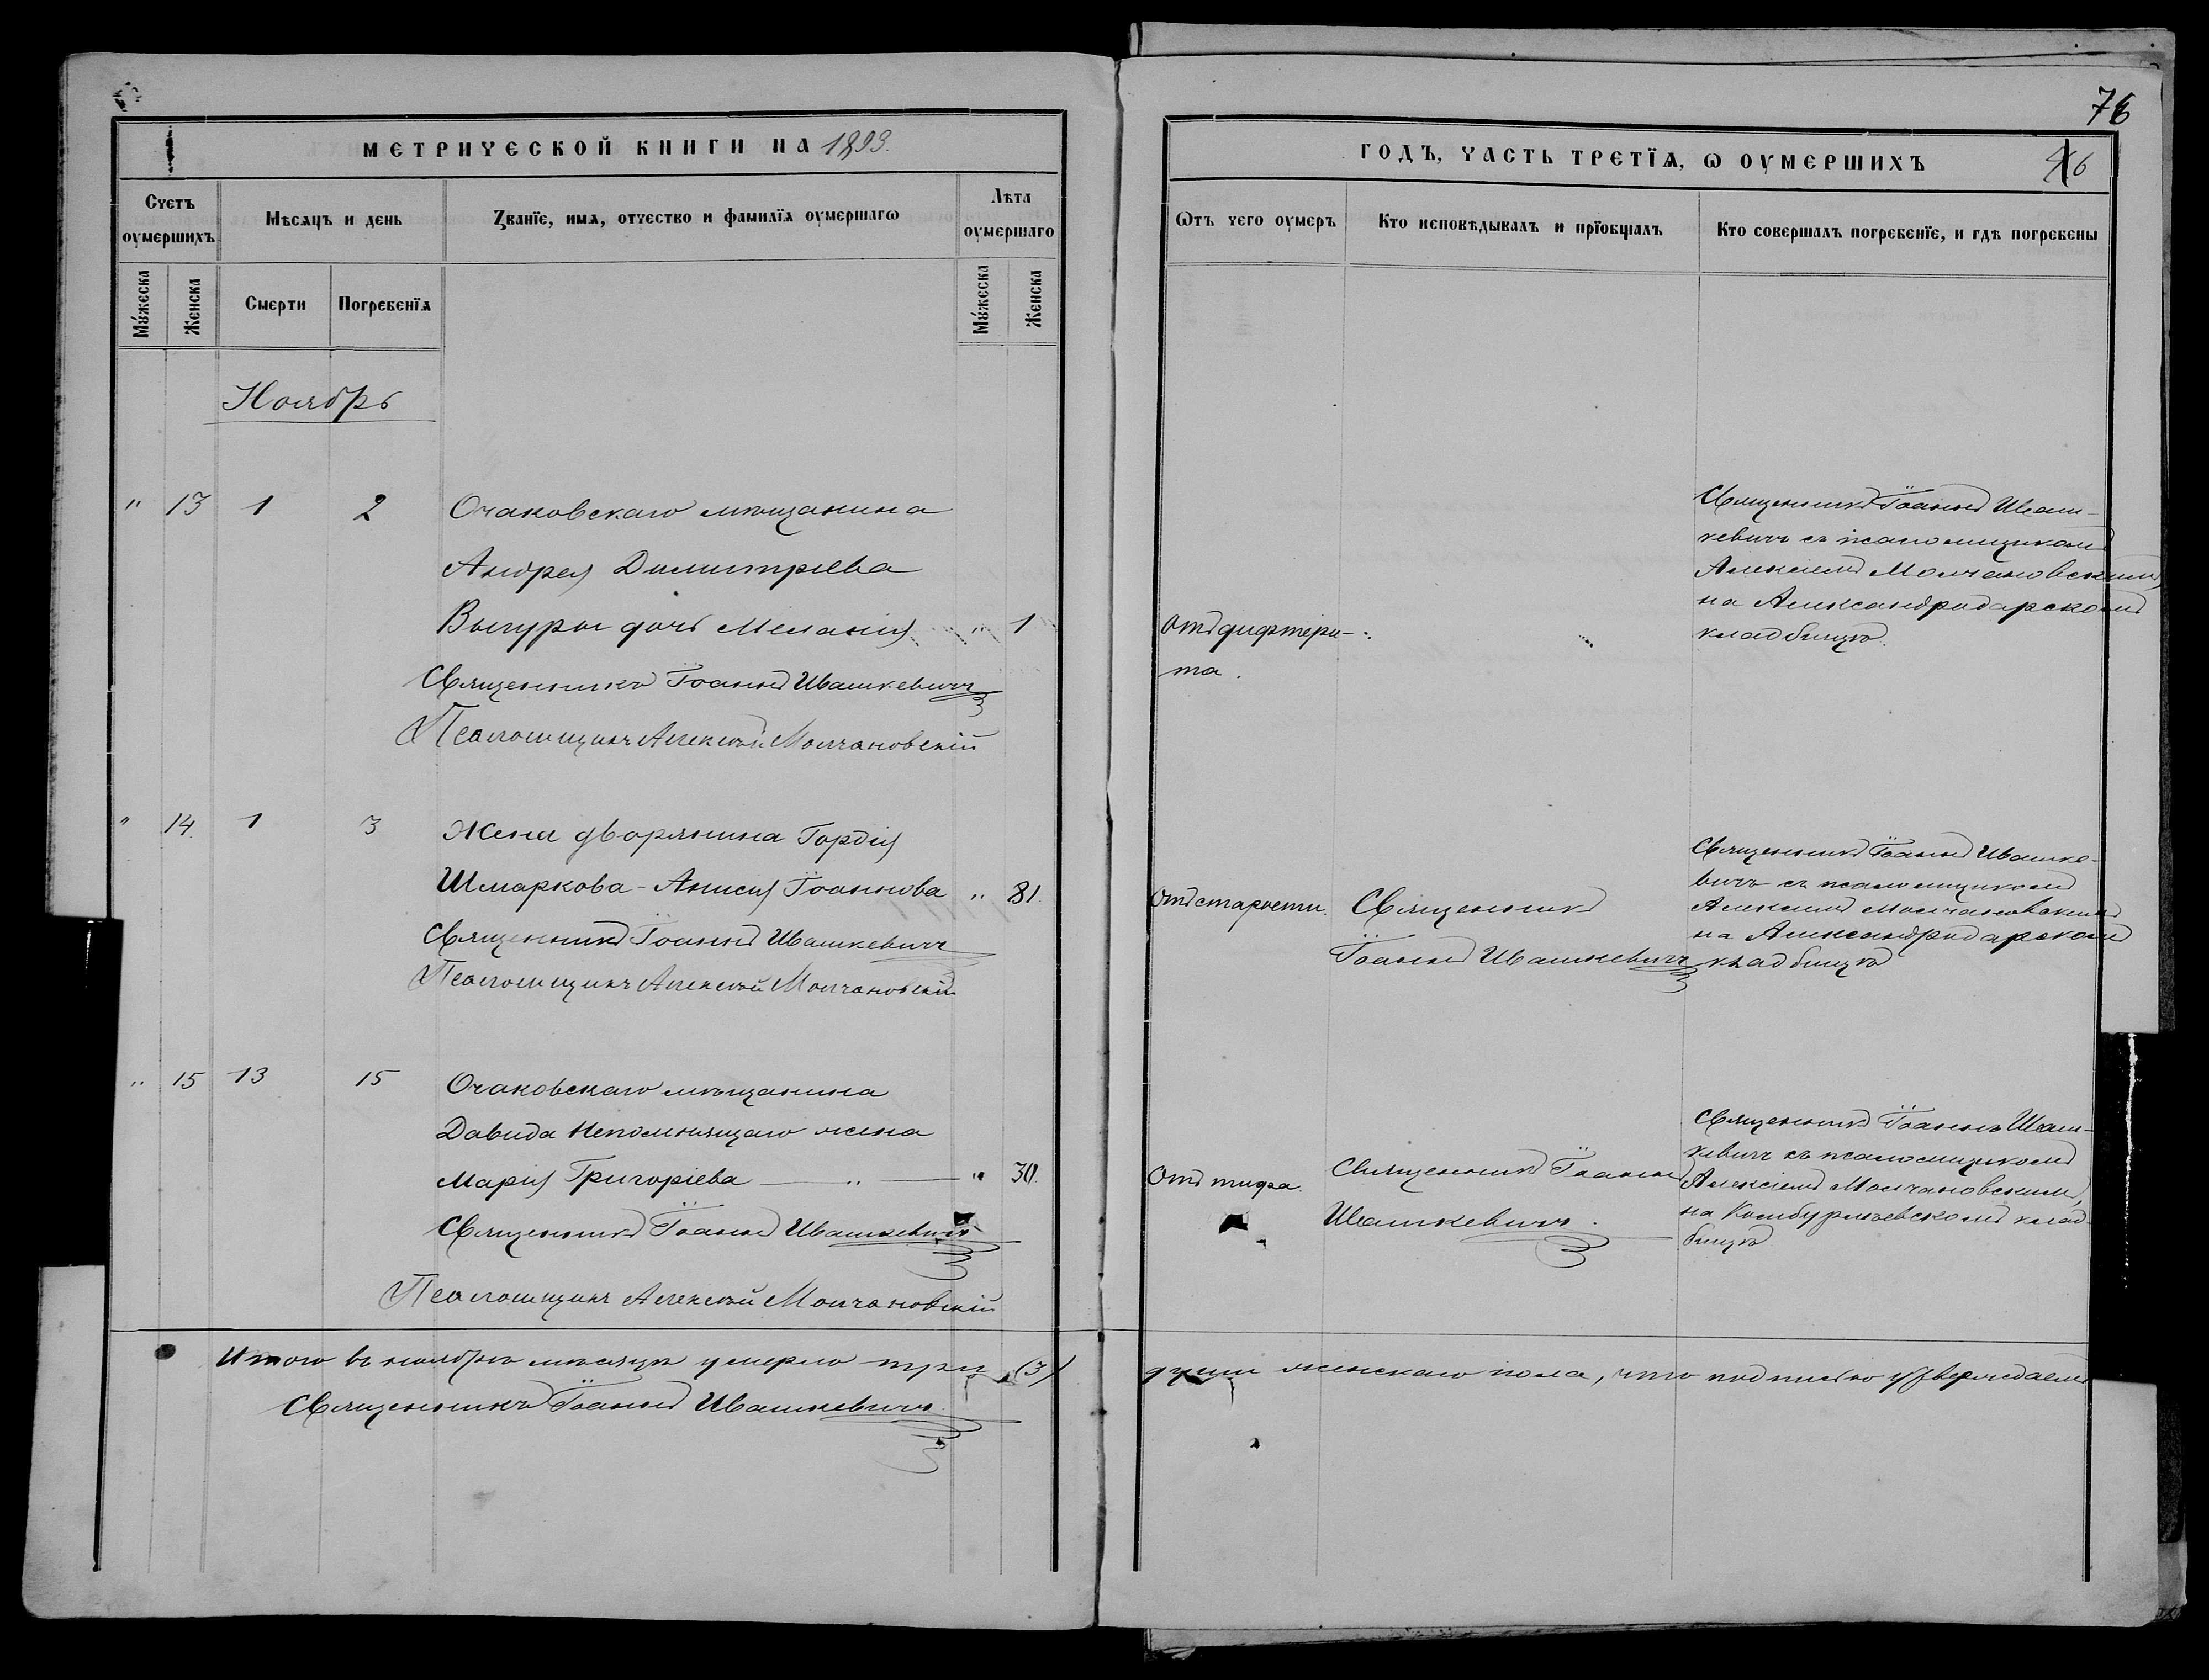 76
МЕТРИЧЕСКОЙ КНИГИ НА 1893.
ГОДЪ, ЧАСТЬ ТРЕТІѦ, Ѡ ОУМЕРШИХЪ
Счетъ оумершихъ
Мѣсяцъ и день
Ꙁванїе, имѧ, отчество и фамилїѧ оумершагѡ
Лѣта оумершаго
Ѿтъ чего оумеръ
Кто исповѣдывалъ и прїобщалъ
Кто совершалъ погребенїе, и гдѣ погребены
Мꙋ́жеска
Женска
Смерти
Погребенїѧ
Мꙋ́жеска
Женска
Ноябрь
" 13 1 2 Очаковскаго мѣщанина
Андрея Димитріева
Выгуры дочь Меланія " 1
Священникъ Іоаннъ Ивашкевичъ
Псаломщикъ Алексѣй Молчановскій
Отъ дифтери-
та.
Священникъ Іоаннъ Иваш-
кевичъ съ псаломщикомъ
Алексіемъ Молчановскимъ,
на Александродарскомъ
кладбищѣ.
" 14. 1 3 Жена дворянина Гордія
Шмаркова - Анисія Іоаннова " 81.
Священникъ Іоаннъ Ивашкевичъ
Псаломщикъ Алексѣй Молчановскій
Отъ старости.
Священникъ
Іоаннъ Ивашкевичъ
Священникъ Іоаннъ Ивашке-
вичъ съ псаломщикомъ
Алексіемъ Молчановскимъ
на Александродарскомъ
кладбищѣ
" 15 13 15 Очаковскаго мѣщанина
Давида Непомнящаго жена
Марія Григоріева — " — " 30.
Священникъ Іоаннъ Ивашкевичъ
Псаломщикъ Алексѣй Молчановскій
Отъ тифа.
Священникъ Іоаннъ
Ивашкевичъ.
Священникъ Іоаннъ Иваш-
кевичъ съ псаломщикомъ
Алексіемъ Молчановскимъ,
на кладбищѣ
Итого въ ноябрѣ мѣсяцѣ умерло три (3) души женскаго пола, что подписью утверждаемъ
Священникъ Іоаннъ Ивашкевичъ.